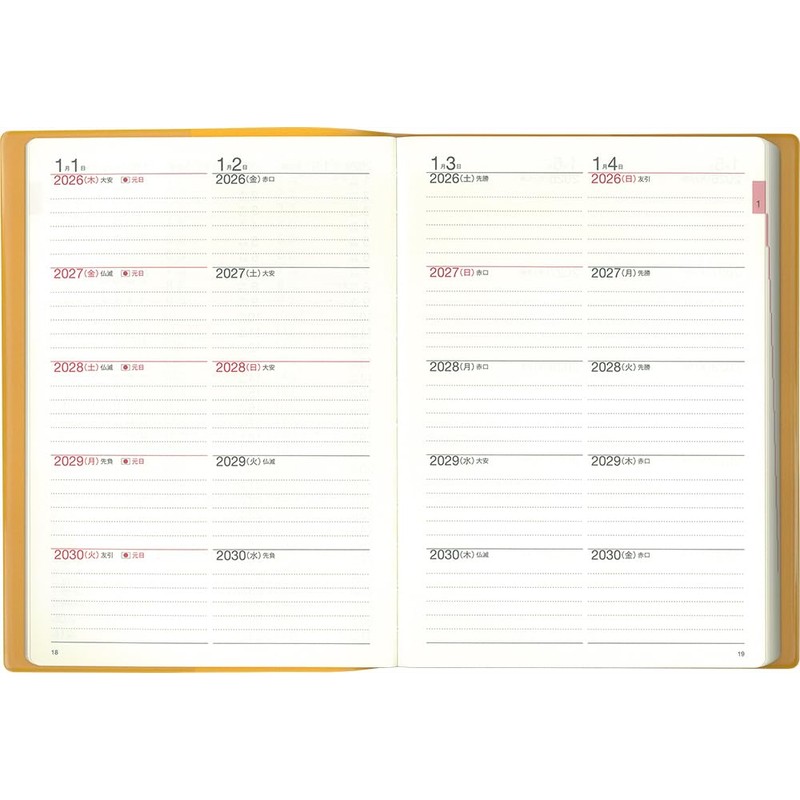 1月1日
2026(木) 大安 元日
2027(金) 仏滅 元日
2028(土) 仏滅 元日
2029(月) 先負 元日
2030(火) 友引 元日
18
1月2日
2026(金) 赤口
2027(土) 大安
2028(日) 大安
2029(火) 仏滅
2030(水) 先負
1月3日
2026(土) 先勝
2027(日) 赤口
2028(月) 赤口
2029(水) 大安
2030(木) 仏滅
1月4日
2026(日) 友引
2027(月) 先勝
2028(火) 先勝
2029(木) 赤口
2030(金) 赤口
19
1